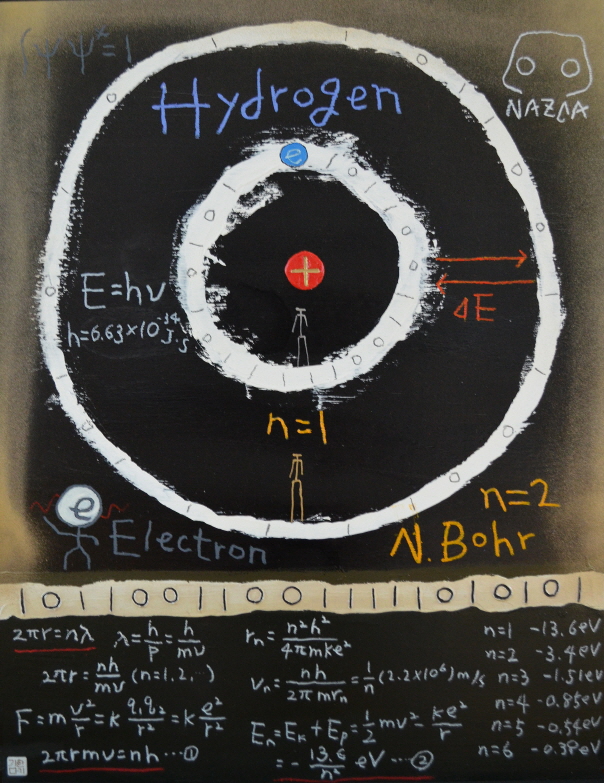 ∫ΨΨ*=1
NAZCA
Hydrogen
e
+
E=hν
h=6.63×10⁻³⁴ J·s
ΔE
n=1
n=2
e
Electron
N.Bohr
2πr=nλ λ=h/p=h/mv
2πr=nh/mv (n=1,2, )
F=m v²/r=k q₁q₂/r²=k e²/r²
2πrmv=nh ⋯①
rₙ=n²h²/4πmke²
vₙ=nh/2πmrₙ=1/n(2.2×10⁶)m/s
Eₙ=Eₖ+Eₚ=1/2 mv²-ke²/r
=-13.6/n² eV ⋯②
n=1 -13.6eV
n=2 -3.4eV
n=3 -1.51eV
n=4 -0.85eV
n=5 -0.54eV
n=6 -0.38eV